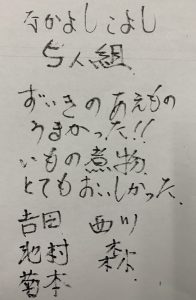 なかよし こよし
5人組
ずいきの あえもの
うまかった!!
いもの煮物
とてもおいしかった、
吉田 西川
北村 森
菊本